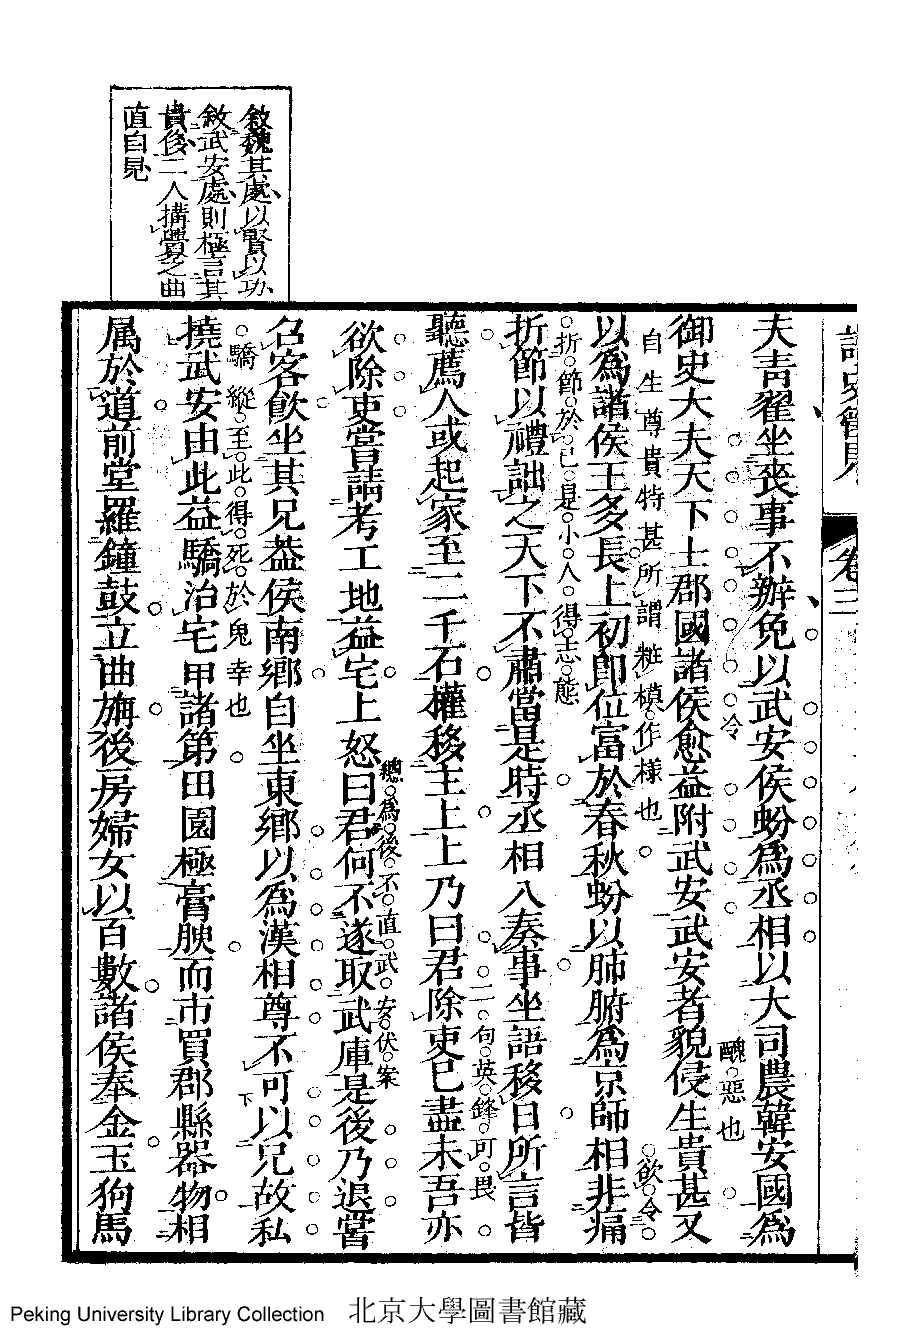 敘魏其處以賢以功
敘武安處則極言其
貴後二人搆釁之曲
直自見
卷三
夫青翟坐喪事不辦免以武安侯蚡爲丞相以大司農韓安國爲
御史大夫天下士郡國諸侯愈益附武安武安者貌侵生貴甚又
令
醜惡也
欲令
以爲諸侯王多長上初卽位富於春秋蚡以肺腑爲京師相非痛
自生尊貴特甚所謂粧模作樣也
折節以禮詘之天下不肅當是時丞相入奏事坐語移日所言皆
折節於已是小人得志態
聽薦人或起家至二千石權移主上上乃曰君除吏已盡未吾亦
二句英鋒可畏
欲除吏嘗請考工地益宅上怒曰君何不遂取武庫是後乃退嘗
總爲後不直武安伏案
召客飮坐其兄葢侯南鄉自坐東鄉以爲漢相尊不可以兄故私
下
撓武安由此益驕治宅甲諸第田園極膏腴而市買郡縣器物相
驕縱至此得死於鬼幸也
属於道前堂羅鐘鼓立曲旃後房婦女以百數諸侯奉金玉狗馬
Peking University Library Collection 北京大學圖書館藏